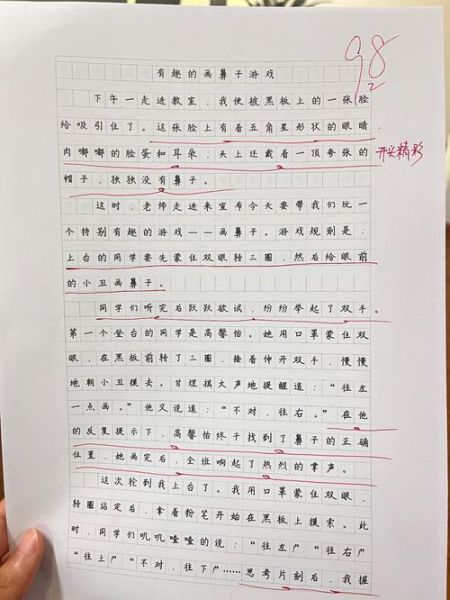 98
2
有趣的画鼻子游戏
下午一走进教室，我便被黑板上的一张脸
给吸引住了。这张脸上有着五角星形状的眼睛，
肉嘟嘟的脸蛋和耳朵，头上还戴着一顶夸张的
开头精彩
帽子，独独没有鼻子。
这时，老师走进来宣布今天要带我们玩一
个特别有趣的游戏——画鼻子。游戏规则是：
上台的同学要先蒙住双眼转三圈，然后给眼前
的小丑画鼻子。
同学们听完后跃跃欲试，纷纷举起了双手。
第一个登台的同学是高馨怡。她用口罩蒙住双
眼，在黑板前转了三圈，接着伸开双手，慢慢
地朝小丑摸去。甘煜棋大声地提醒道：“往左
一点画。”他又说道：“不对，往右。”在他
的反复提示下，高馨怡终于找到了鼻子的正确
位置，她画完后，全班响起了热烈的掌声。
这次轮到我上台了。我用口罩蒙住双眼，
转圈站定后，拿着粉笔开始在黑板上摸索。此
时，同学们叽叽喳喳的说：“往左！”“往右！”
“往上！”“不对，往下！”……思考片刻后，我握